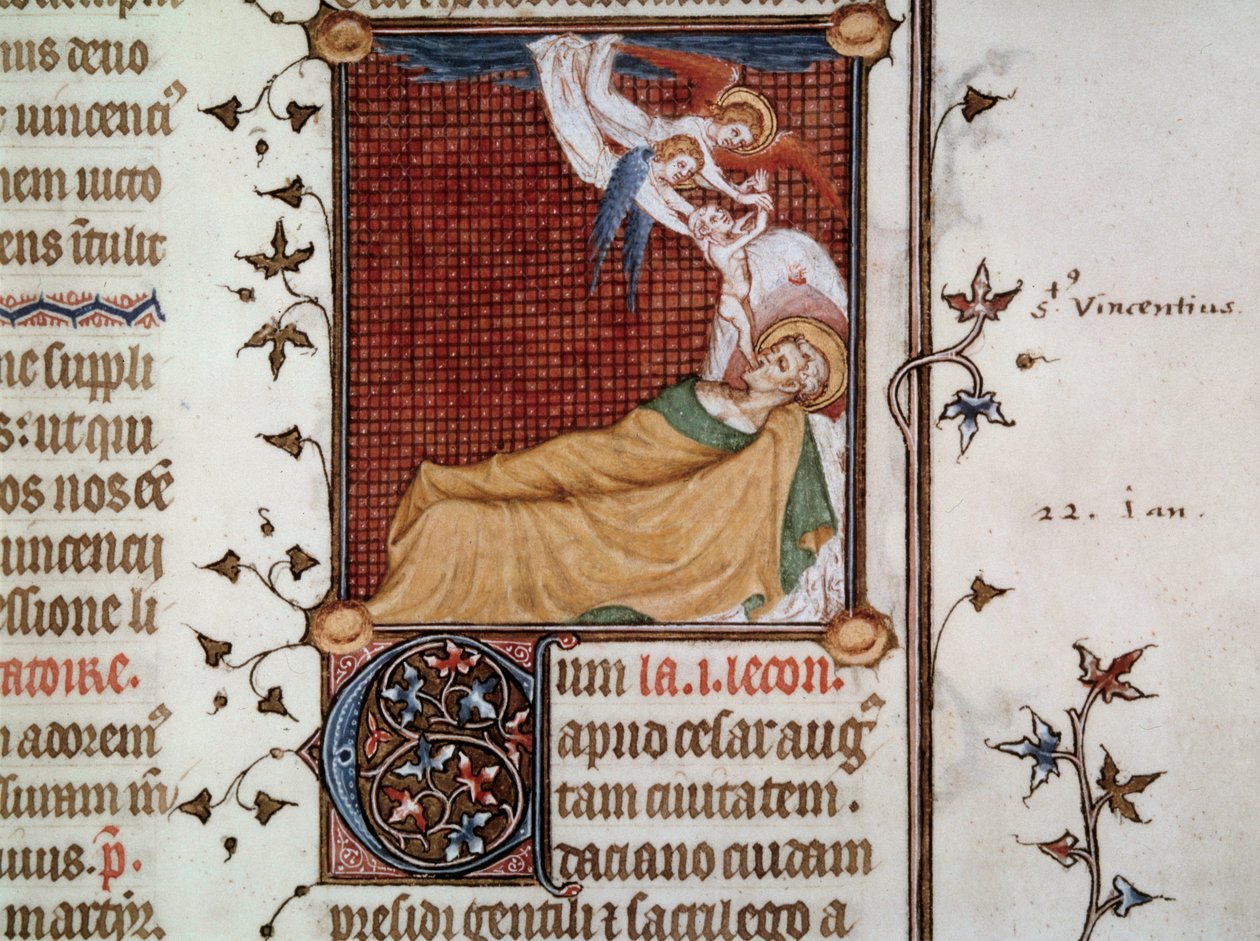 nus deno
uincenci⁹
nem uicto
ens ĩtulit
ne suppli
s: ut qui
os nos eē
uincencij
essione li
atoire.
adorem⁹
iuuis. p̃.
martyr.
Cum la .i. lecon.
apud cesar aug⁹
tam ciuitatem.
daciano cuidam
presidi gentili ⁊ sacrilego a
S.t⁹ Vincentius.
22. Ian.